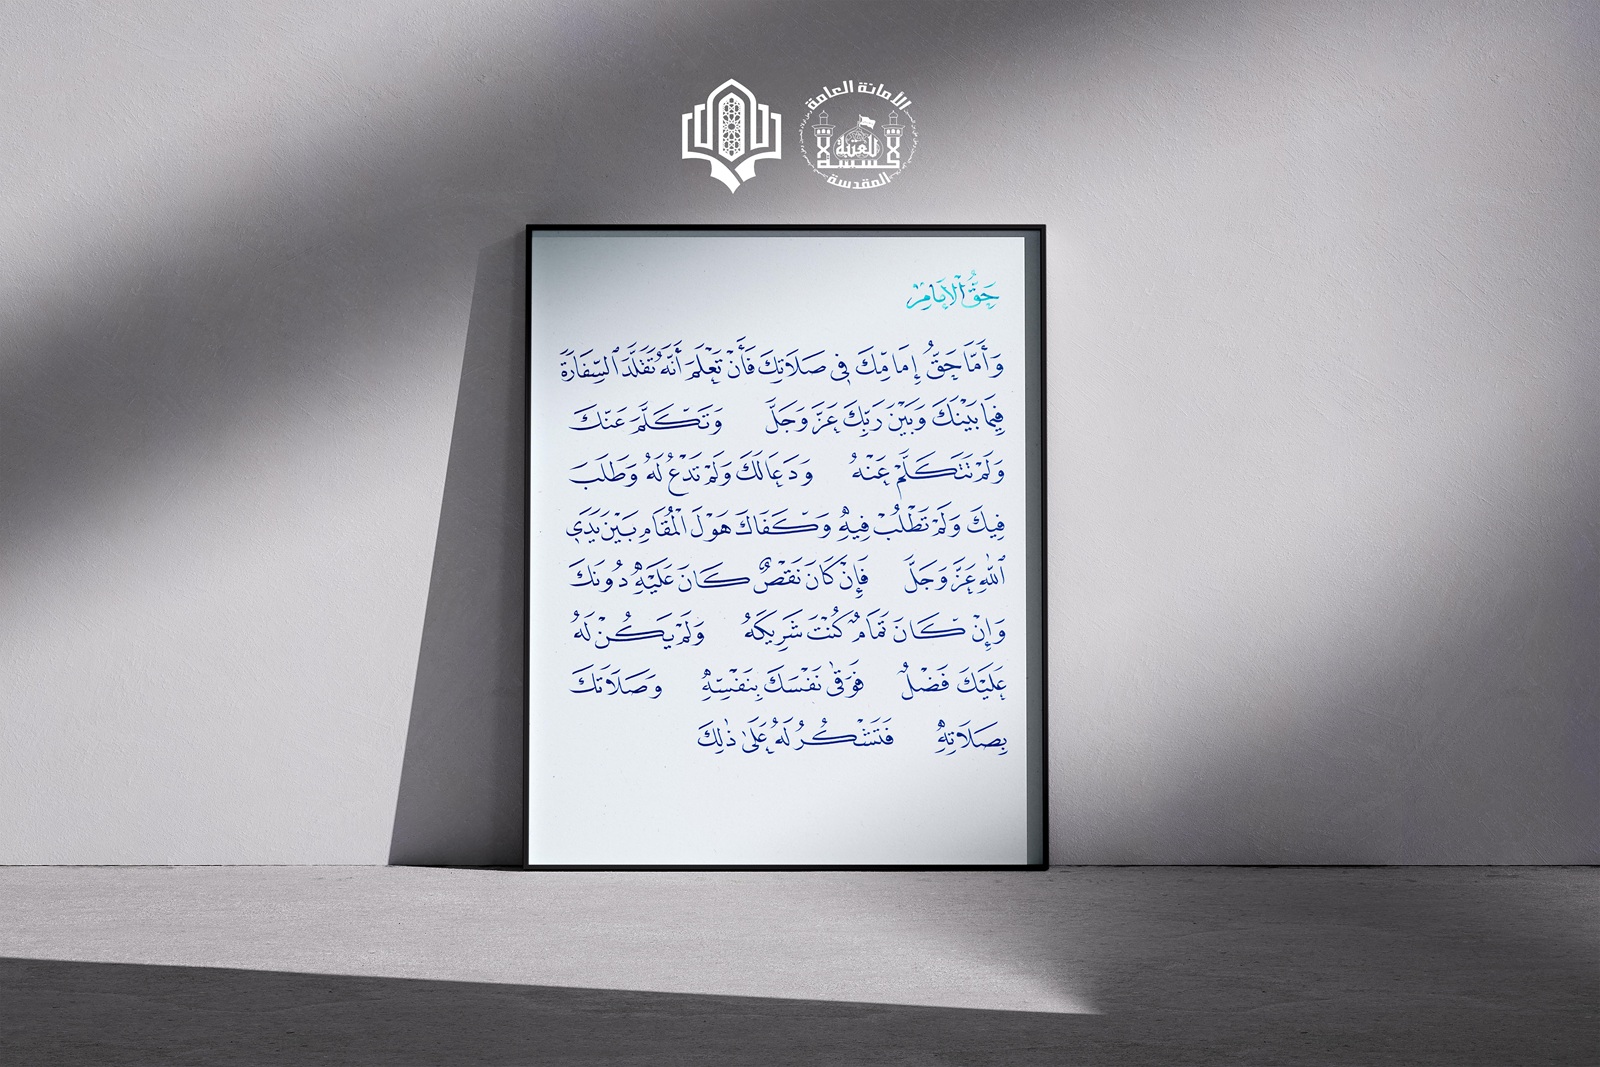 الأمانة العامة
للعتبة
المقدسة
حَقُّ الْإِمَامِ
وَأَمَّا حَقُّ إِمَامِكَ فِي صَلَاتِكَ فَأَنْ تَعْلَمَ أَنَّهُ تَقَلَّدَ السِّفَارَةَ
فِيمَا بَيْنَكَ وَبَيْنَ رَبِّكَ عَزَّ وَجَلَّ وَتَكَلَّمَ عَنْكَ
وَلَمْ تَتَكَلَّمْ عَنْهُ وَدَعَا لَكَ وَلَمْ تَدْعُ لَهُ وَطَلَبَ
فِيكَ وَلَمْ تَطْلُبْ فِيهِ وَكَفَاكَ هَوْلَ الْمُقَامِ بَيْنَ يَدَيِ
اللهِ عَزَّ وَجَلَّ فَإِنْ كَانَ نَقْصٌ كَانَ عَلَيْهِ دُونَكَ
وَإِنْ كَانَ تَمَامٌ كُنْتَ شَرِيكَهُ وَلَمْ يَكُنْ لَهُ
عَلَيْكَ فَضْلٌ فَوَقَى نَفْسَكَ بِنَفْسِهِ وَصَلَاتَكَ
بِصَلَاتِهِ فَتَشْكُرُ لَهُ عَلَى ذٰلِكَ